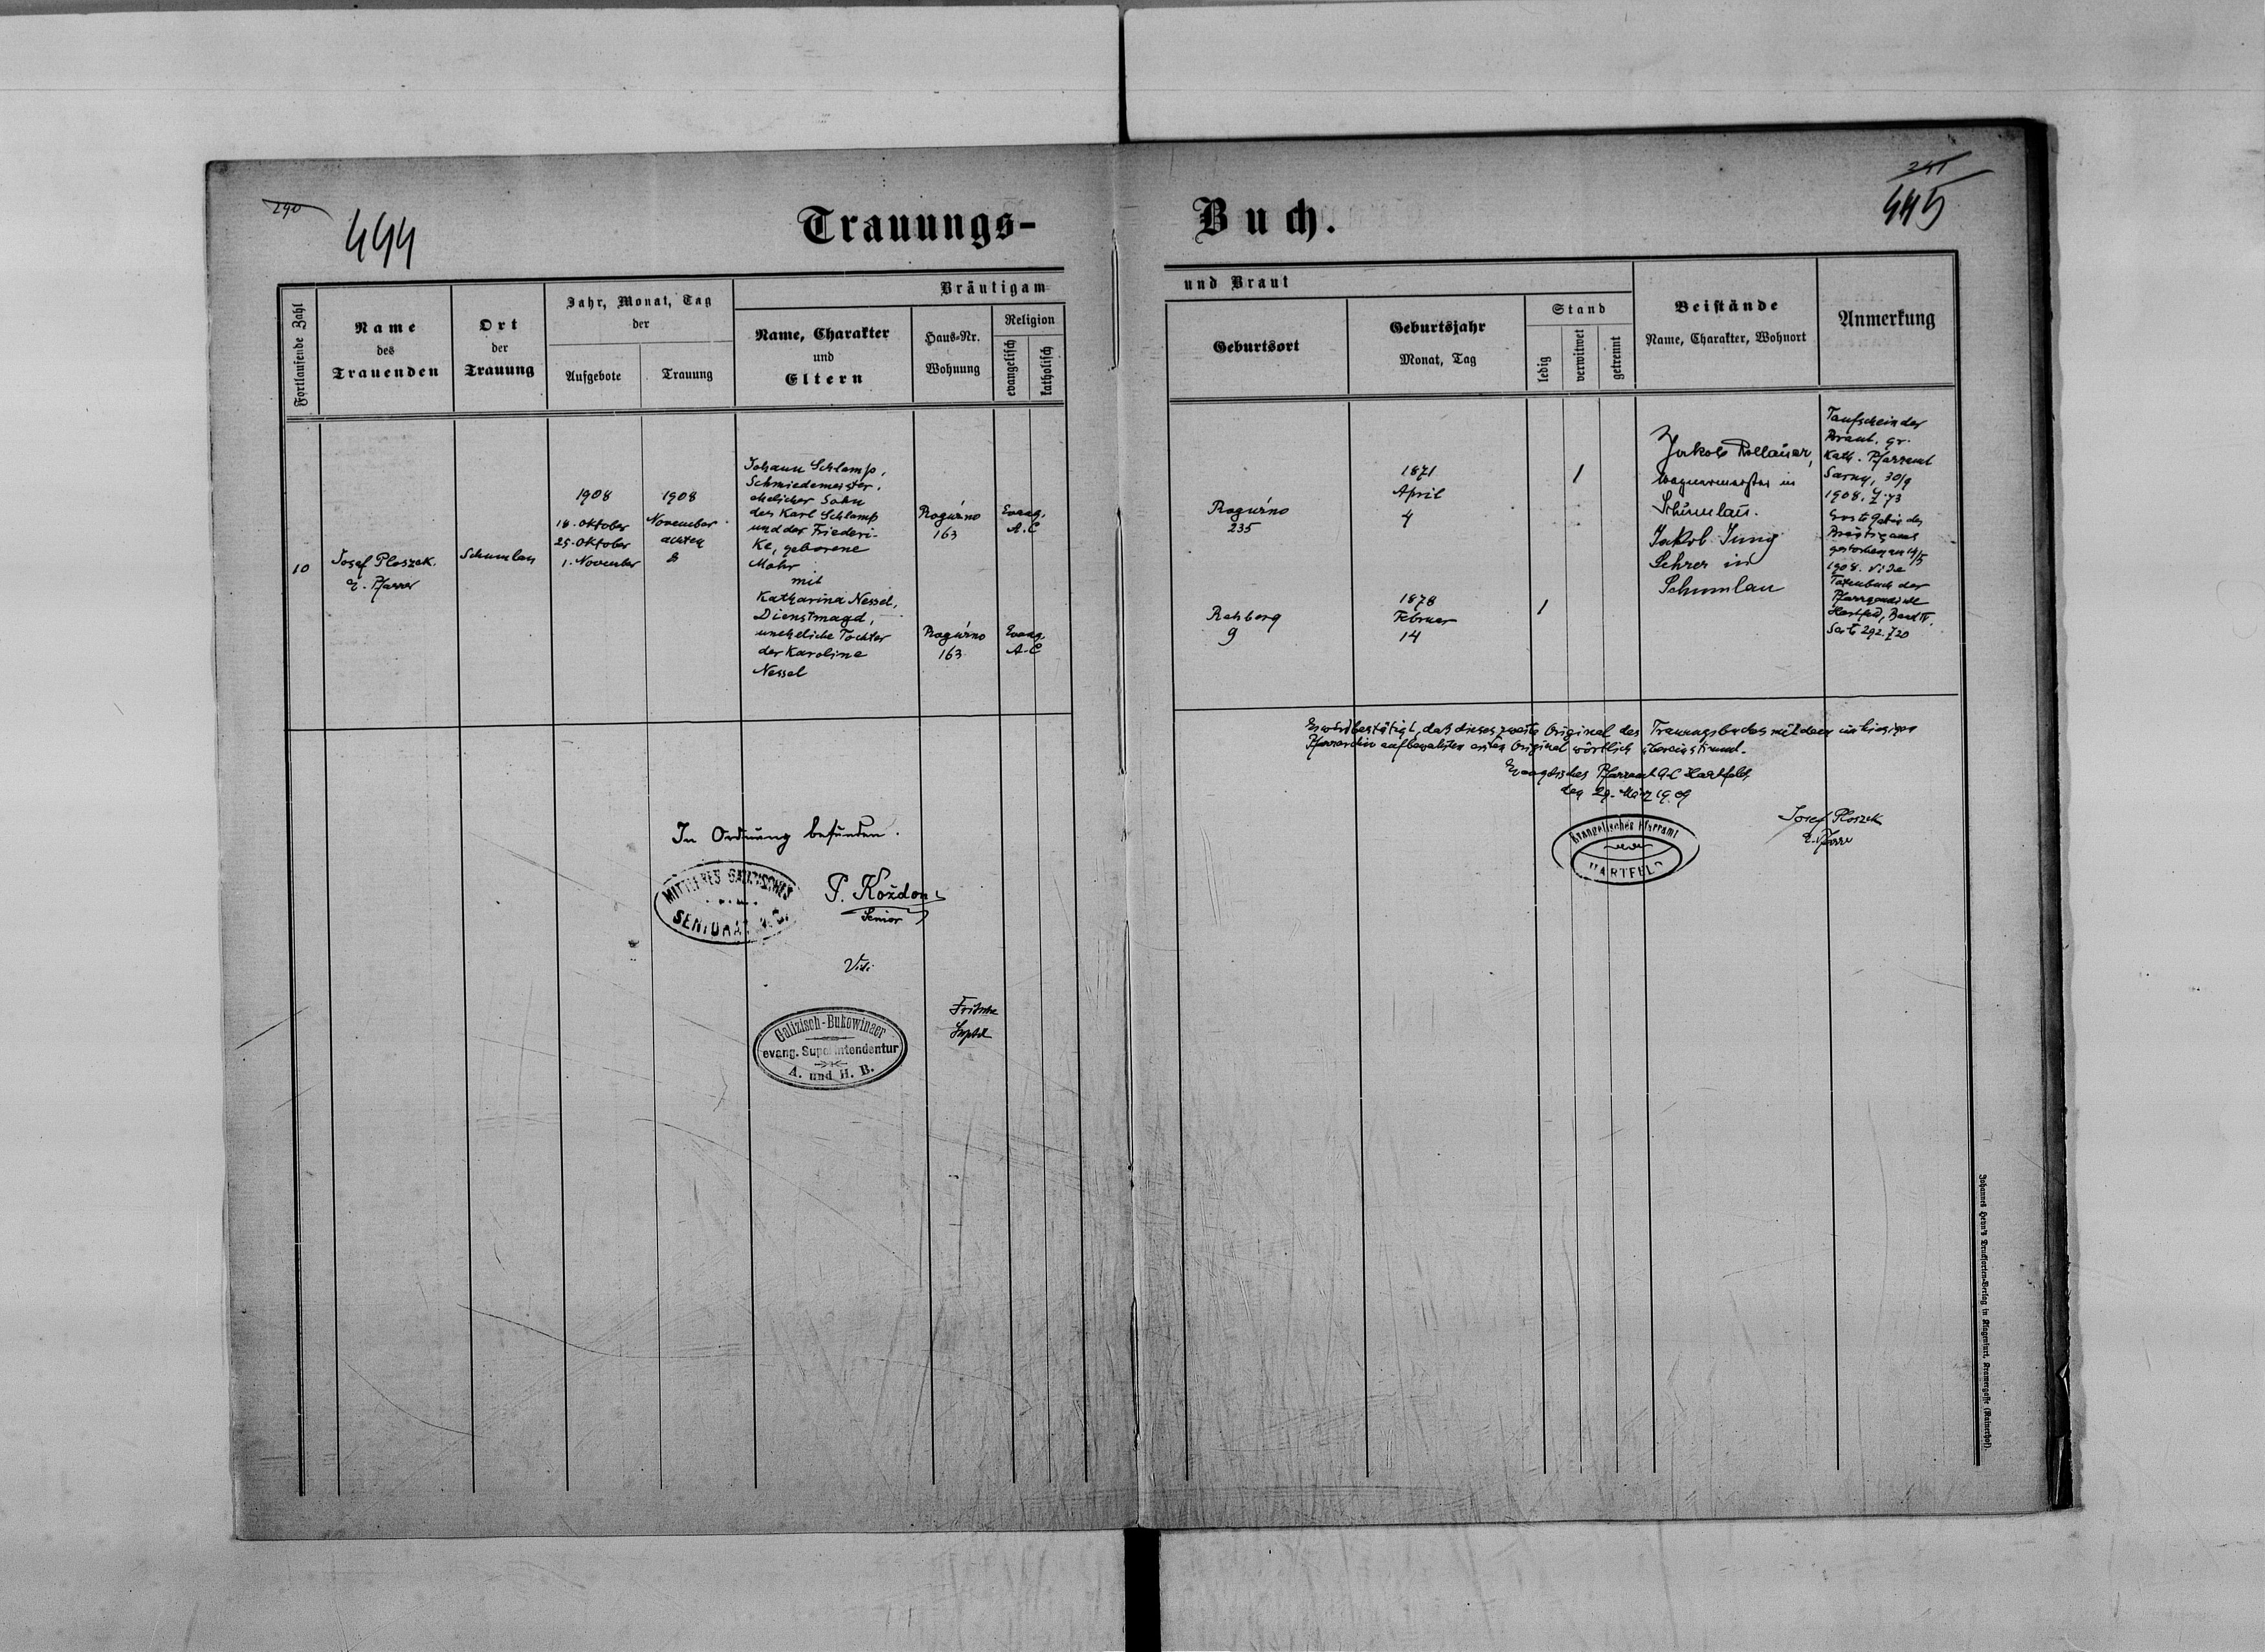 290
444
Trauungs-
Fortlaufende Zahl
Name
des
Trauenden
Ort
der
Trauung
Jahr, Monat, Tag
der
Aufgebote
Trauung
Bräutigam
Name, Charakter
und
Eltern
Haus-Nr.
Wohnung
Religion
evangelisch
katholisch
10
Josef Ploszek.
E. Pfarrer
Schumlau
1908
18. Oktober
25. Oktober
1. November
1908
November
achten
8
Johann Schlamp,
Schmiedemeister,
ehelicher Sohn
des Karl Schlamp
und der Friederi-
ke, geborene
Mohr
mit
Katharina Nessel,
Dienstmagd,
uneheliche Tochter
der Karoline
Nessel
Rogúzno
163
Evang.
A. C
Rogúzno
163
Evang.
A. C
In Ordnung befunden.
MITTLERES GALIZISCHES
SENIORAT A. C.
P. Koždon
Senior
Vidi
Galizisch-Bukowinaer
evang. Superintendentur
A. und H. B.
Fritsche
Suptdt
241
445
Buch.
und Braut
Geburtsort
Geburtsjahr
Monat, Tag
Stand
ledig
verwitwet
getrennt
Beistände
Name, Charakter, Wohnort
Anmerkung
Rogúzno
235
1871
April
4
1
Rehberg
9
1878
Februar
14
1
Jakob Rollauer,
Wagnermeister in
Schumlau.
Jakob Jung
Lehrer in
Schumlau
Taufschein der
Braut, gr.
Kath. Pfarramt
Sarny, 30/9
1908. Z. 73
Erste Gattin des
Bräutigams
gestorben am 14/5
1908. vide
Totenbuch der
Pfarrgemeinde
Hartfeld, Band IV.
Seite 292. Z 20
Es wird bestätigt, daß dieses zweite Original des Trauungsbuches mit dem im hiesigen
Pfarrarchiv aufbewahrten ersten Original wörtlich übereinstimmt.
Evangelisches Pfarramt A. C Hartfeld,
den 29. März 1909
Evangelisches Pfarramt
HARTFELD
Josef Ploszek
E. Pfarrer
Johannes Heyn's Drucksorten-Verlag in Klagenfurt, Kramergasse (Rainerhof).